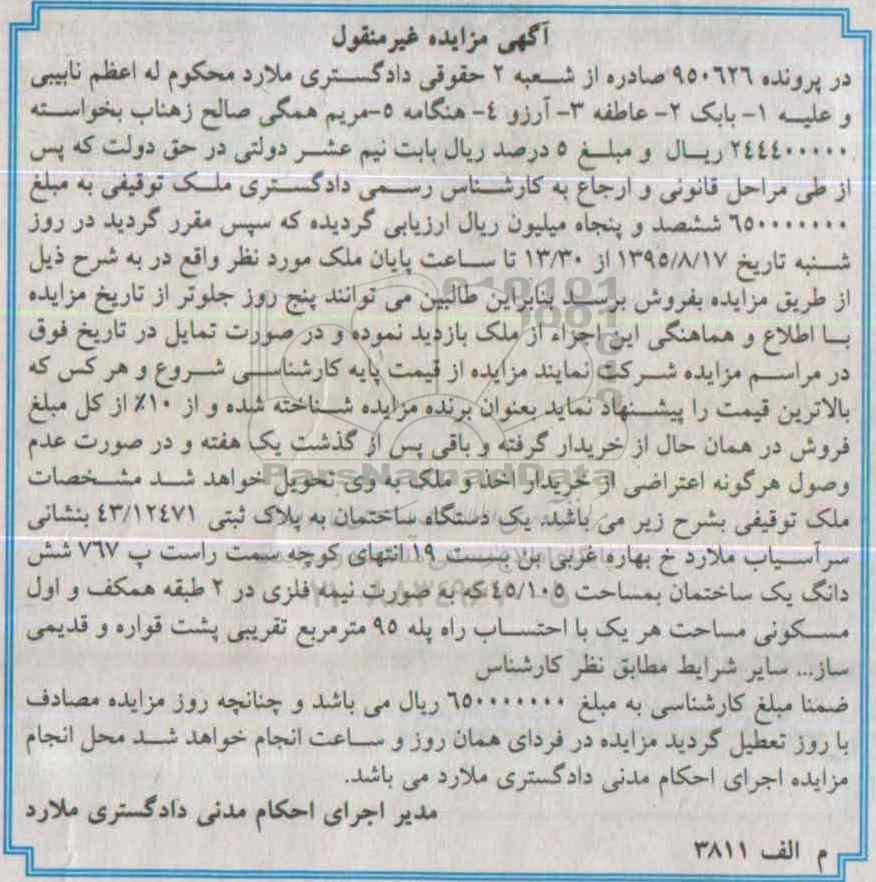 آگهی مزایده غیرمنقول
در پرونده ۹۵۰۶۲۶ صادره از شعبه ۲ حقوقی دادگستری ملارد محکوم له اعظم نایبی
و علیه ۱- بابک ۲- عاطفه ۳- آرزو ٤- هنگامه ٥-مریم همگی صالح زهتاب بخواسته
۲٤٤٤۰۰۰۰۰ ریال و مبلغ ٥ درصد ریال بابت نیم عشر دولتی در حق دولت که پس
از طی مراحل قانونی و ارجاع به کارشناس رسمی دادگستری ملک توقیفی به مبلغ
٦٥۰۰۰۰۰۰۰ ششصد و پنجاه میلیون ریال ارزیابی گردیده که سپس مقرر گردید در روز
شنبه تاریخ ۱۳۹٥/۸/۱۷ از ۱۳/۳۰ تا ساعت پایان ملک مورد نظر واقع در به شرح ذیل
از طریق مزایده بفروش برسد بنابراین طالبین می توانند پنج روز جلوتر از تاریخ مزایده
با اطلاع و هماهنگی این اجراء از ملک بازدید نموده و در صورت تمایل در تاریخ فوق
در مراسم مزایده شرکت نمایند مزایده از قیمت پایه کارشناسی شروع و هر کس که
بالاترین قیمت را پیشنهاد نماید بعنوان برنده مزایده شناخته شده و از ۱۰٪ از کل مبلغ
فروش در همان حال از خریدار گرفته و باقی پس از گذشت یک هفته و در صورت عدم
وصول هرگونه اعتراضی از خریدار اخذ و ملک به وی تحویل خواهد شد مشخصات
ParsNamadData
ملک توقیفی بشرح زیر می باشد. یک دستگاه ساختمان به پلاک ثبتی ٤۳/۱۲٤۷۱ بنشانی
سرآسیاب ملارد خ بهاره غربی بن بست ۱۹ انتهای کوچه سمت راست پ ۷٦۷ شش
دانگ یک ساختمان بمساحت ٤٥/۱۰٥ که به صورت نیمه فلزی در ۲ طبقه همکف و اول
مسکونی مساحت هر یک با احتساب راه پله ۹٥ مترمربع تقریبی پشت قواره و قدیمی
ساز... سایر شرایط مطابق نظر کارشناس
ضمنا مبلغ کارشناسی به مبلغ ٦٥۰۰۰۰۰۰۰ ریال می باشد و چنانچه روز مزایده مصادف
با روز تعطیل گردید مزایده در فردای همان روز و ساعت انجام خواهد شد محل انجام
مزایده اجرای احکام مدنی دادگستری ملارد می باشد.
مدیر اجرای احکام مدنی دادگستری ملارد
م الف ۳۸۱۱